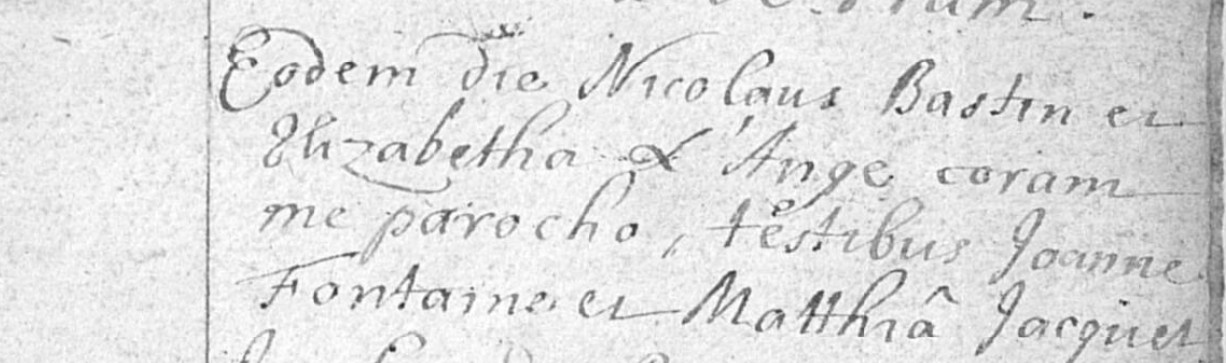 Eodem die Nicolaus Bastin et
Elizabetha L'Ange coram
me parocho, testibus Joanne
Fontaine et Matthiâ Jacquet